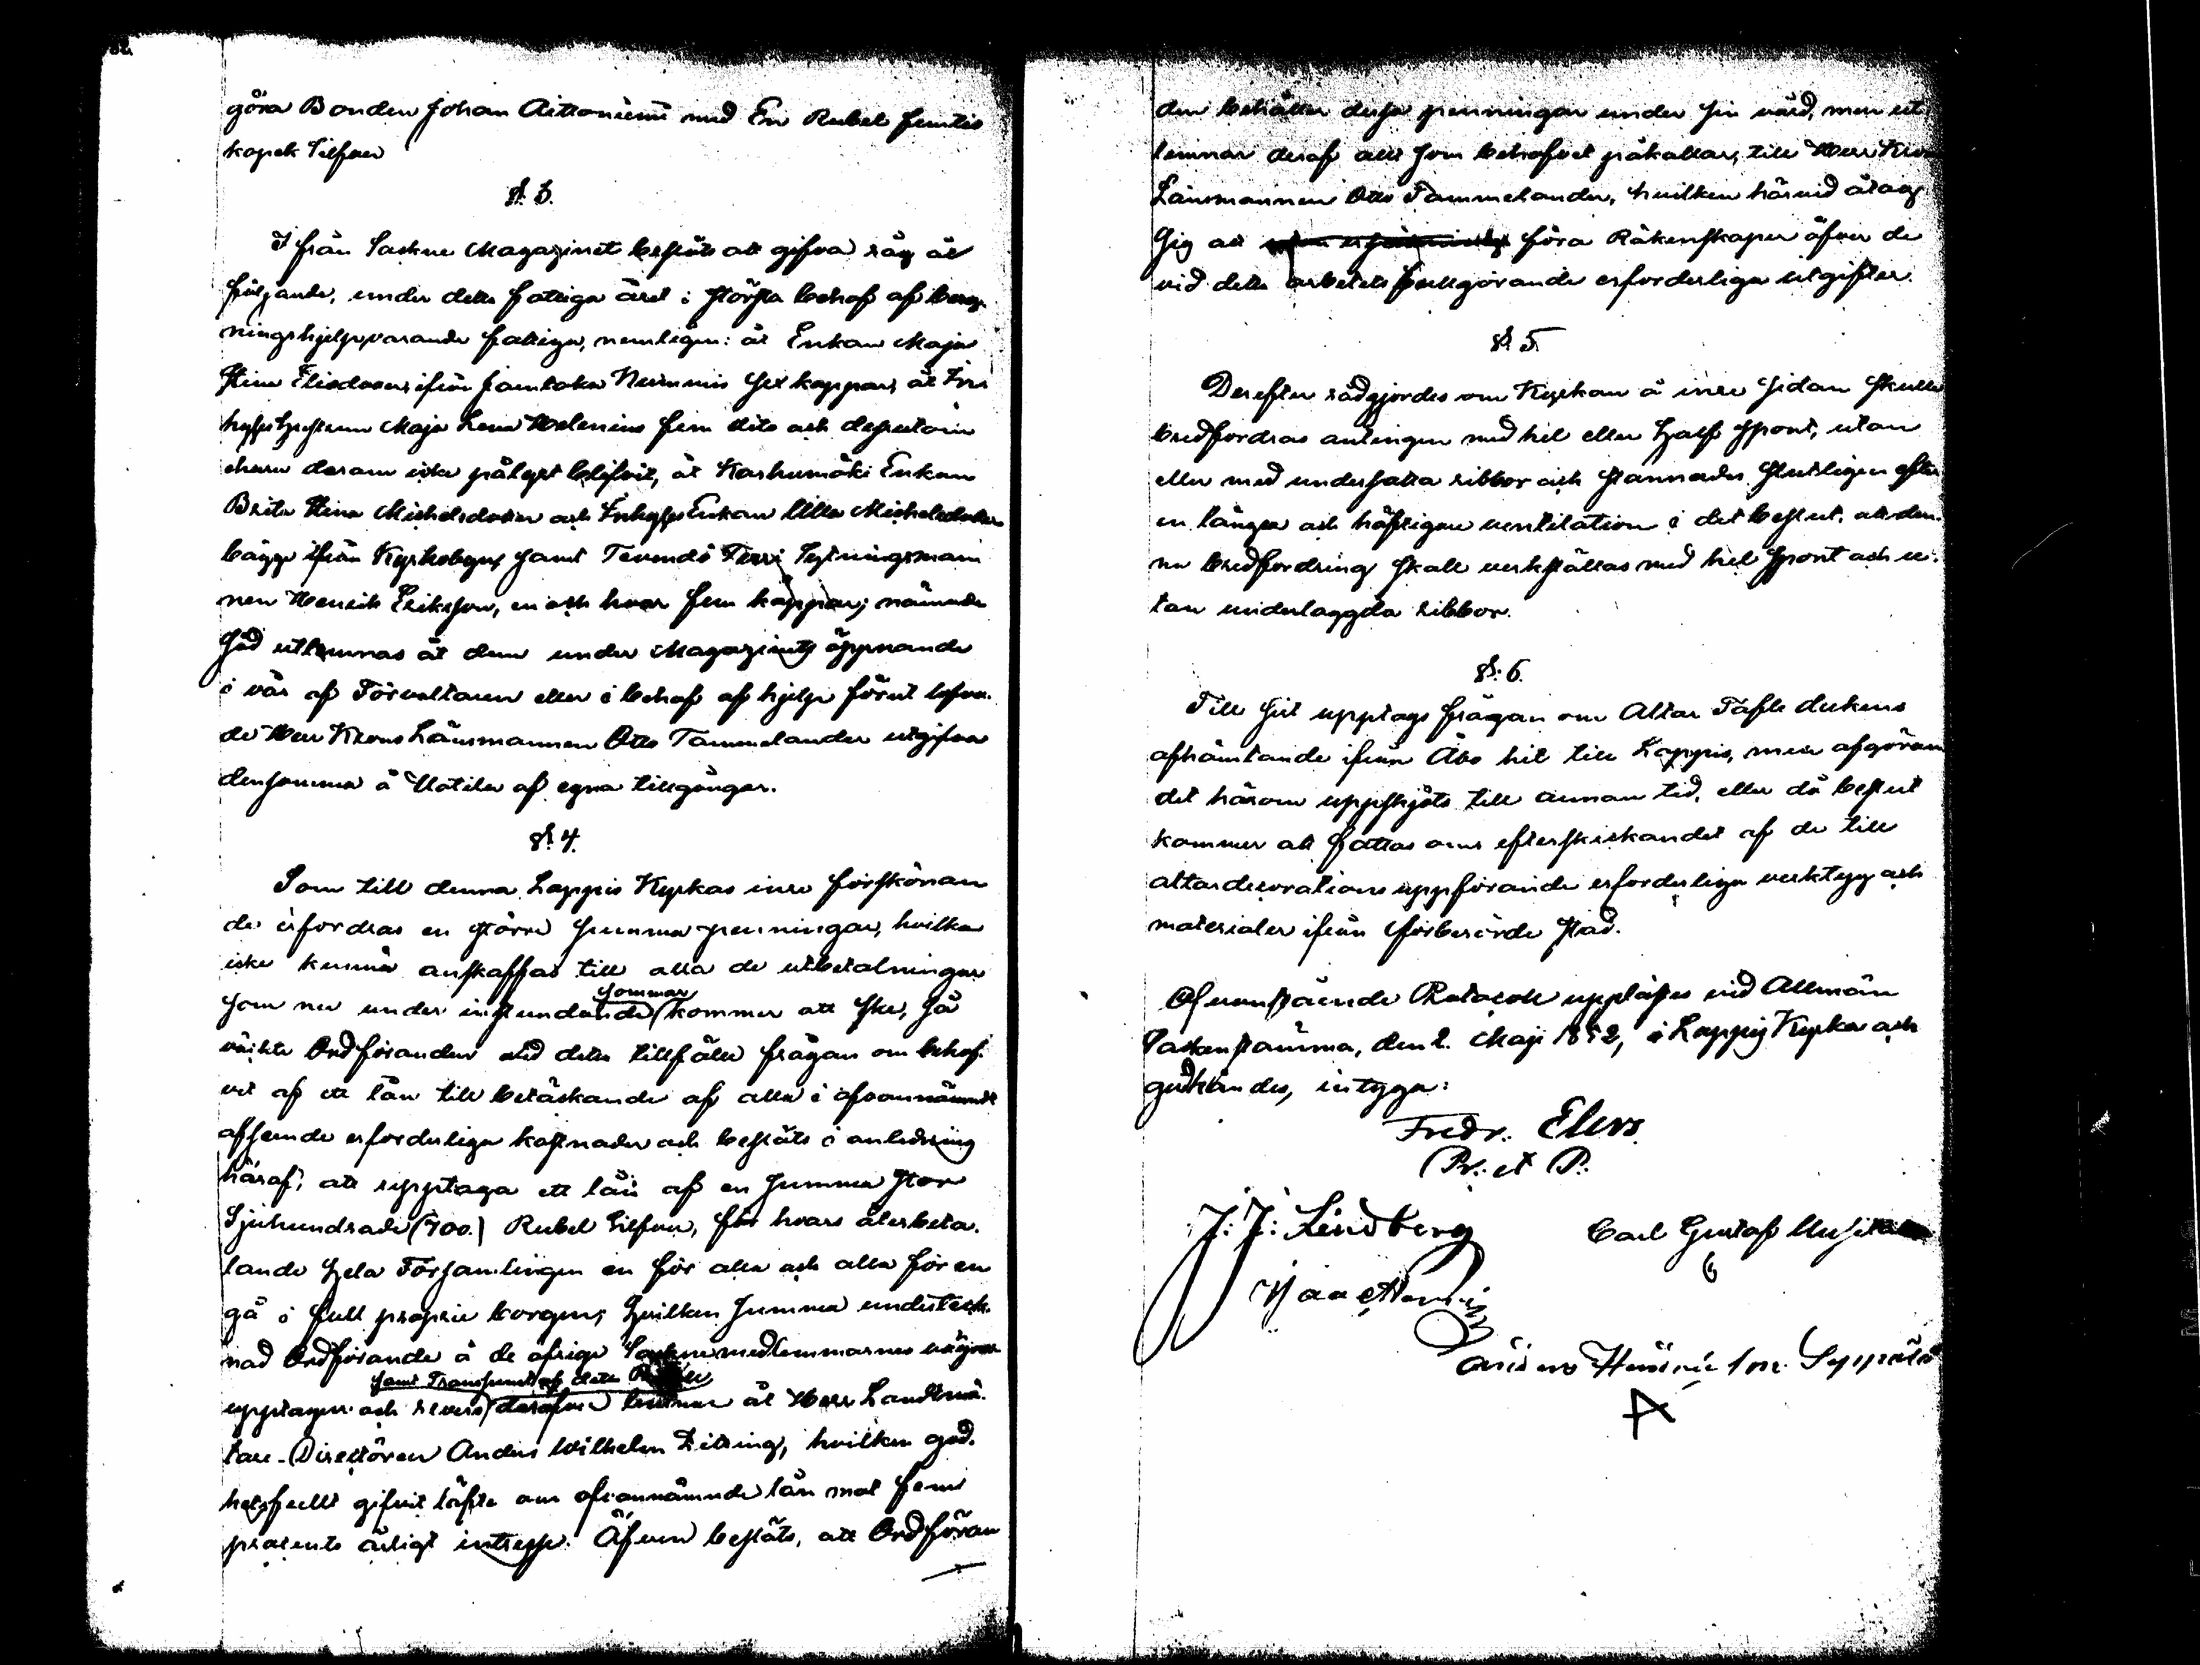 göra Bonden Johan Aittoniemi med En Rubel femtio
kopek Silfver
§. 3.
Ifrån Sockne Magazinet beslöts att gifva råg åt
följande, under detta fattiga året i största behof af berg-
ningshjelp varande fattiga, nemligen: åt Enkan Maja
Stina Eliedotter ifrån Jamtaka Nurmis sex kappar, åt In-
hyses Maja Lena Helenius fem dito och
derom icke blifvit, åt Karhumäki Enkan
Brita Stina Michelsdotter och Inhyses Enkan Ulla Michelsdotter
bägge ifrån Kyrkobyn, samt Sytningsman
nen Henrik Eriksson, en och hvar fem kappar; nämnde
Säd utlemnas åt dem under Magazinets öppnande
i vår af Förvaltaren eller i behof af hjelp förut lofva-
de Herr Krono Länsmannen Otto Tammelander utgifva
densamma å Uotila af egna tillgångar.
§. 4.
Som till denna Lappis Kyrkas inre förskönan
de erfordras en större summa penningar, hvilka
icke kunna anskaffas till alla de utbetalningar
sommar
som nu under instundande kommer att ske, så
väckte Ordföranden vid detta tillfälle frågan om behof-
vet af ett lån till betäckande af alla i ofvannämndt
afseende erforderliga kostnader och beslöts i anledning
häraf, att upptaga ett lån af en summa stor
Sjuhundrade (700.) Rubel Silfver, för hvars återbeta-
lande hela Församlingen en för alla och alla för en
gå i full proprie borgen; hvilken summa underteck-
nad Ordförande å de öfrige Sockne medlemmarnes vägnar
samt Transsumt af detta
upptager och revers derofver lemnar åt Herr Landtmä-
tare-Direktören Anders Wilhelm, hvilken god-
hetsfullt gifvit löfte om ofvannämnde lån mot fem
procents årligt intresse. Äfven beslöts, att Ordföran
den behåller dessa penningar under sin vård, men ut
lemnar deraf allt som behofvet påkallar, till Herr Krono
Länsmannen Otto Tammelander, hvilken härvid åtog
Sig att föra Räkenskaper öfver de
vid detta arbetets fullgörande erforderliga utgifter.
§. 5
Derefter rådgjordes om Kyrkan å inre sidan skulle
brädfordras antingen med hel eller half spont, utan
eller med undersatta ribbor och stannades slutligen efter
en längre och häftigare ventilation i det beslut, att den-
na brädfordring skall verkställas med hel spont och u-
tan underlaggda ribbor.
§. 6.
Till sist upptogs frågan om Altar Tafle dukens
afhämtande ifrån Åbo hit till Lappis, men afgöran
det härom uppskjöts till annan tid, eller då beslut
kommer att fattas om efterskickandet af de till
altardecorations uppförande erforderliga verktyg och
materialer ifrån förberörde stad.
Ofvanstående Protocoll upplästes vid Allmän
Sockenstämma, den 2. Maji 1852, i Lappis Kyrka och
godkändes, intyga:
Fredr. Elers.
Pr. et P.
J: J: Lindberg
Carl Gustaf
A